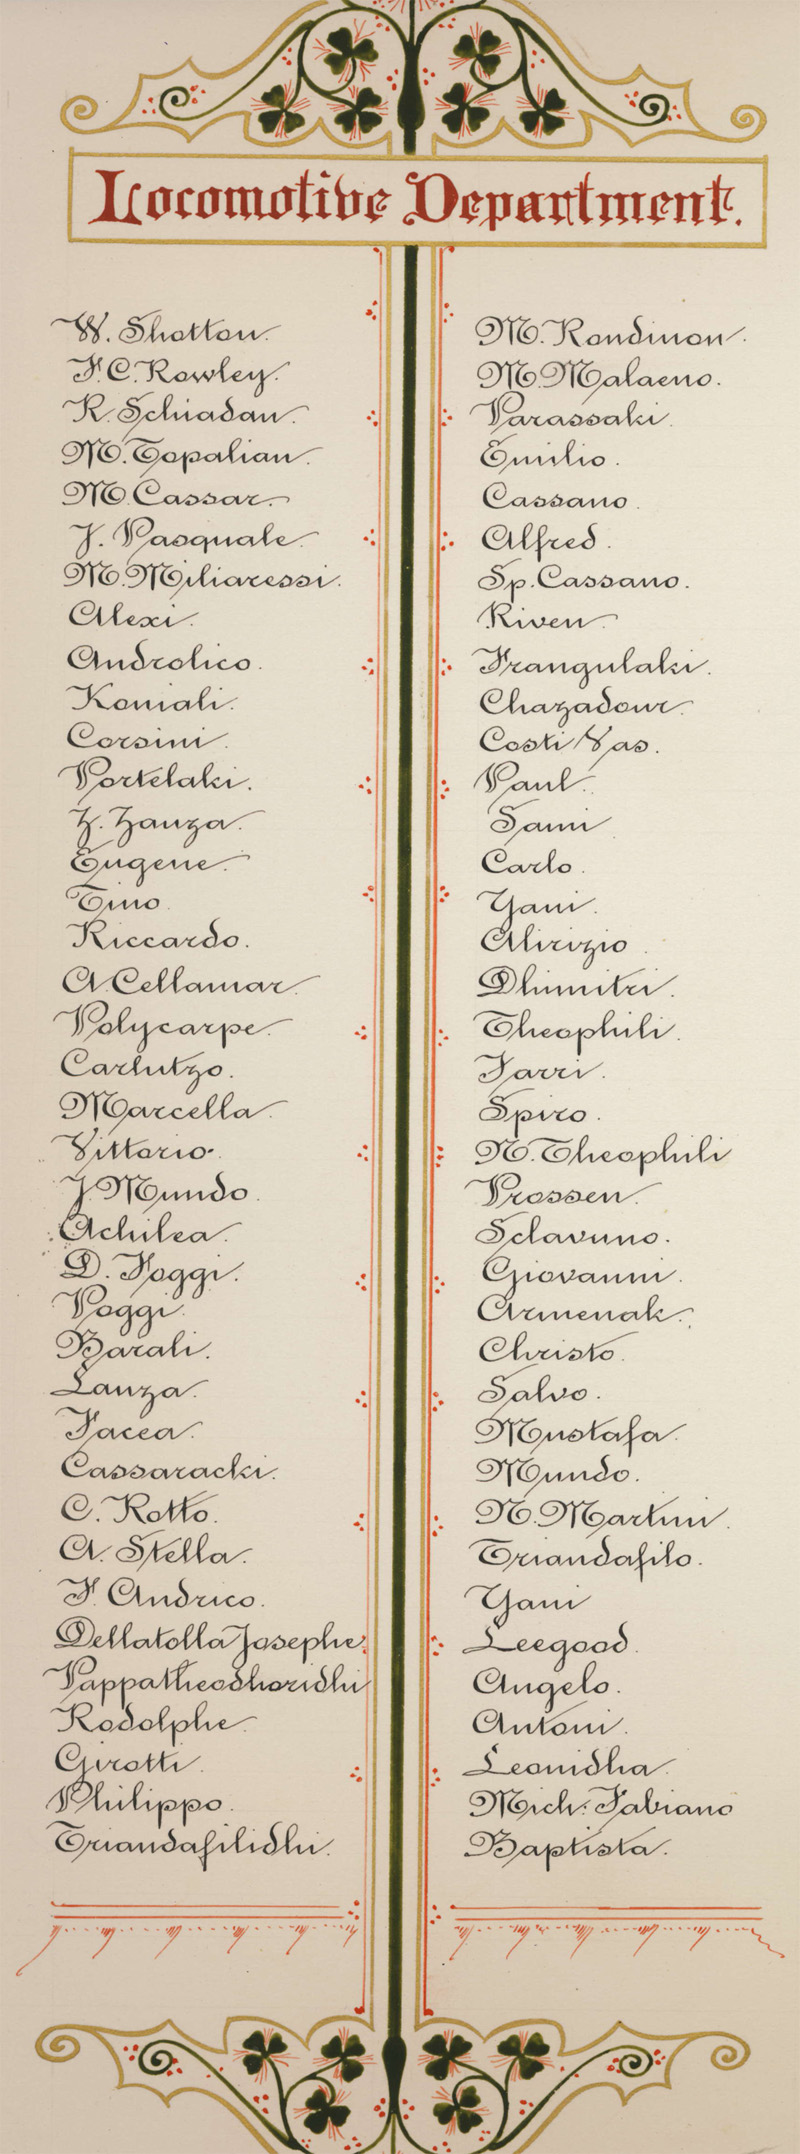 Locomotive Department.
W. Shotton.
F. C. Rowley.
R. Schiadan.
M. Topalian.
M. Cassar.
J. Pasquale.
M. Miliaressi.
Alexi.
Androlico.
Koniali.
Corsini.
Portelaki.
Z. Zanza.
Eugene.
Tino.
Riccardo.
A. Cellamar.
Polycarpe.
Carlutzo.
Marcella.
Vittorio.
J. Mundo.
Achilea.
D. Foggi.
Poggi.
Barali.
Lanza.
Facea.
Cassaracki.
C. Rotto.
A. Stella.
F. Andrico.
Dellatolla Josephe.
Pappatheodhoridhi
Rodolphe.
Girotti.
Philippo.
Triandafilidhi.
M. Rondinon.
M. Malaeno.
Parassaki.
Emilio.
Cassano.
Alfred.
Sp. Cassano.
Riven.
Frangulaki.
Chazadour.
Costi Vas.
Paul.
Sami
Carlo.
Yani.
Alirizio.
Dhimitri.
Theophili.
Farri.
Spiro.
N. Theophili
Prossen.
Sclavuno.
Giovanni.
Armenak.
Christo.
Salvo.
Mustafa.
Mundo.
N. Martini.
Triandafilo.
Yani
Leegood.
Angelo.
Antoni.
Leonidha.
Mich: Fabiano
Baptista.